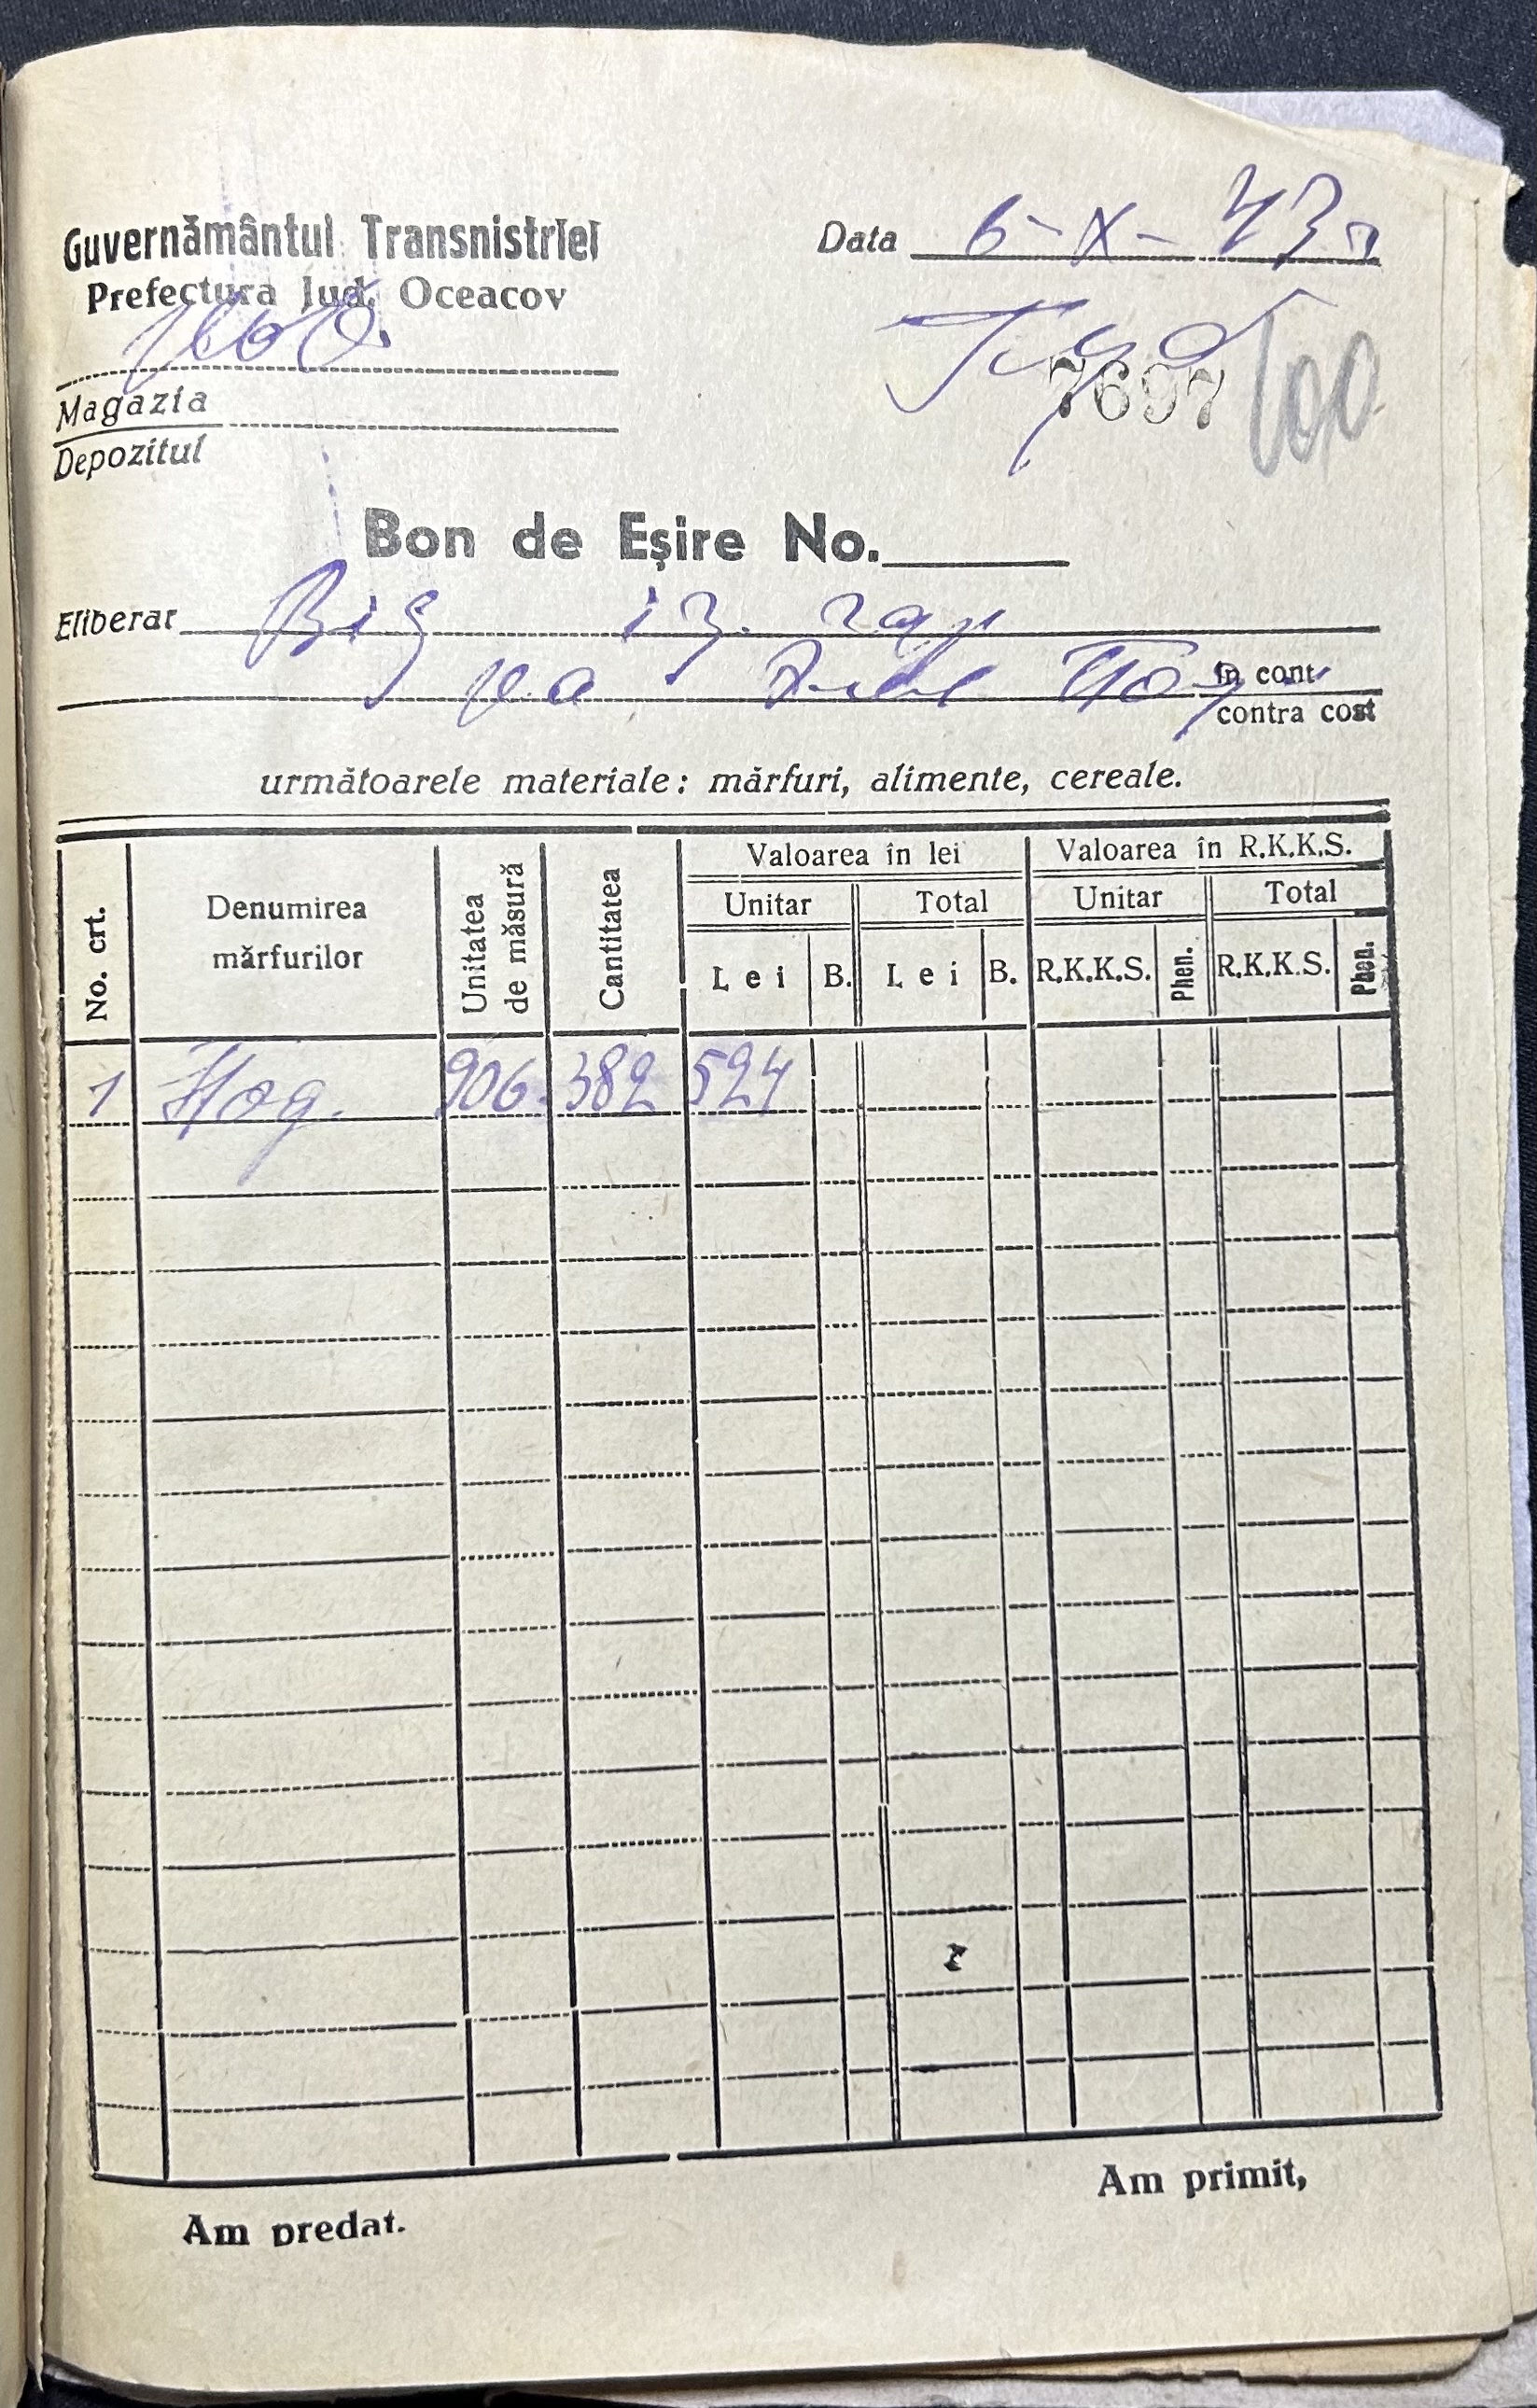 Guvernământul Transnistriei
Prefectura Jud. Oceacov
Data 6-X-43
Magazia
Depozitul
7697
100
Bon de Eșire No.
Eliberat
în cont
contra cost
următoarele materiale: mărfuri, alimente, cereale.
No. crt.
Denumirea mărfurilor
Unitatea de măsură
Cantitatea
Valoarea în lei
Valoarea în R.K.K.S.
Unitar
Total
Unitar
Total
Lei
B.
Lei
B.
R.K.K.S.
Phen.
R.K.K.S.
Phen.
1 906. 382 524
Am predat.
Am primit,